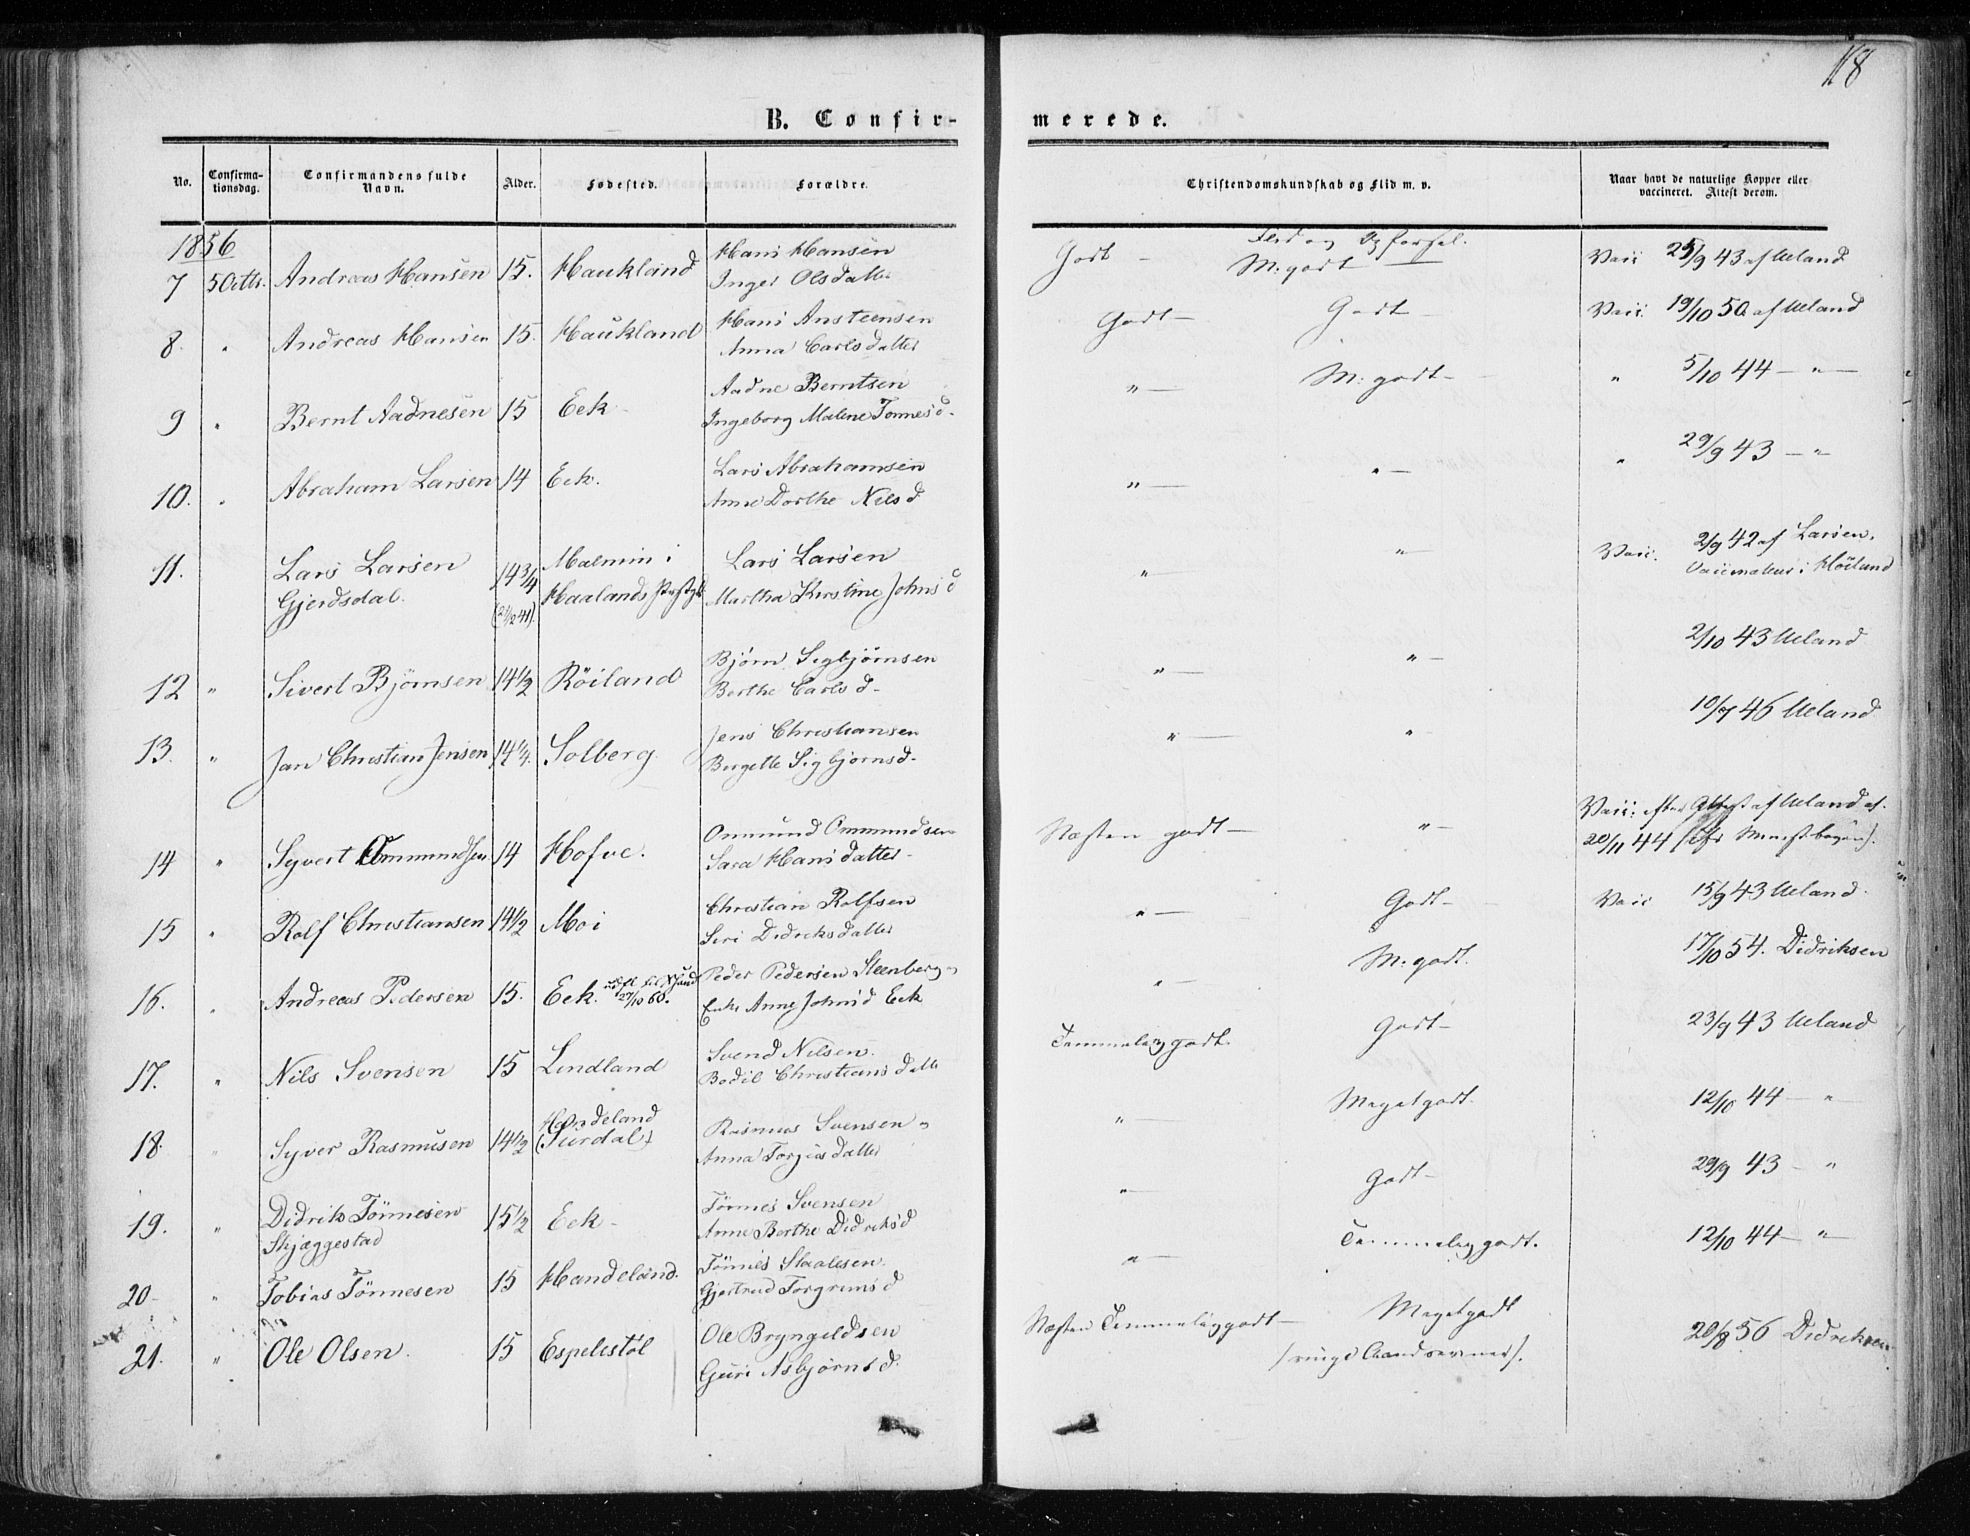 118
B. Confir-
merede.
No.
Confirma-
tionsdag.
Confirmandens fulde
Navn.
Alder.
Fødested.
Forældre.
Christendomskundskab og Flid m. v.
Naar havt de naturlige Kopper eller
vaccineret. Attest derom.
1856
7 5 Octbr. Andreas Hansen 15. Haukland Hans Hansen
Inger Olsdatter
Godt — Flid og Opførsel.
M: godt
Vacc 25/9 43 af Ueland
8. " Andreas Hansen 15. Haukland Hans Ansteensen
Anna Carlsdatter
Godt — Godt — Vacc. 19/10 50 af Ueland
9 " Bernt Aadnesen 15 Eek - Aadne Berntsen
Ingeborg Malene Tønnesd.
" — M: godt — " 5/10 44 — " —
10. " Abraham Larsen 14 Eek. Lars Abrahamsen
Anne Dorthe Nilsd
" — " — " 29/9 43 — "
11. Lars Larsen
Gjerdsdal.
14 3/4 Malmin i
Haalands
Lars Larsen
Martha Kirstine Johnsd
" " — Vacc. 2/9 42 af Larsen.
i Höiland
12 " Sivert Bjørnsen 14 1/2 Röiland Bjørn Sigbjørnsen
Berthe Carlsd -
" — " — 2/10 43 Ueland
13. " Jan Christian Jensen 14 1/4. Solberg Jens Christiansen
Birgette Sigbjørnsd -
" — " 10/7 46 Ueland
14 " Syvert Ommundsen 14 Hofve. Ommund Ommundsen
Sara Hansdatter -
Næsten godt — " — Vacc: efter Attest af Ueland af
20/11 44
15 " Rolf Christiansen 14 1/2 Moi Christian Rolfsen
Siri Didriksdatter
" — Godt — Vacc 15/9 43 Ueland.
16. " Andreas Pedersen 15. Eek. 27/10 60. Peder Pedersen Steenberg
Anne Johnsd Eek
" — M: godt. 17/10 54. Didriksen
17. " Nils Svensen 15 Lindland Svend Nilsen.
Bodil Christiansdatt
Temmelig godt. Godt — 23/9 43 Ueland
18. " Syver Rasmusen 14 1/2 Handeland
(Sirdal) Rasmus Svensen
Anna Torjusdatter
" — Meget godt. 12/10 44 — "
19. " Didrik Tönnesen
Skjæggestad
15 1/2 Eek - Tönnes Svensen
Anne Berthe Didriksd
" — Godt — 29/9 43 — "
20 - " Tobias Tönnesen 15 Handeland. Tönnes Staalesen.
Gjertrud Torgrimsd
" — Temmelig godt. 12/10 44 — " —
21. " Ole Olsen. 15 Espelistöl Ole Bryngeldsen
Guri Asbjørnsd.
Næsten Temmelig godt — Meget godt
(ringe Aandsevner).
20/8 56 Didriksen